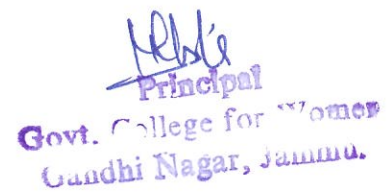 Principal
Govt. College for Women
Gandhi Nagar, Jammu.